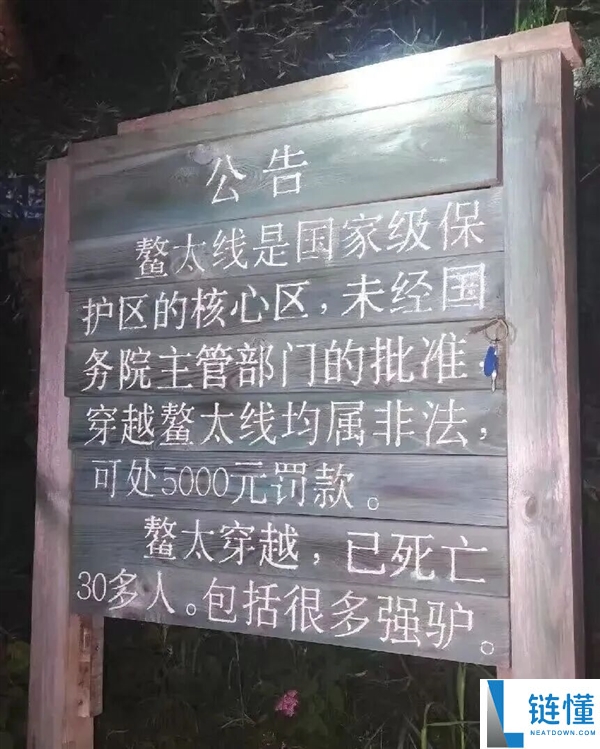 公告
鳌太线是国家级保
护区的核心区，未经国
务院主管部门的批准
穿越鳌太线均属非法，
可处5000元罚款。
鳌太穿越，已死亡
30多人。包括很多强驴。
链懂
NEATDOWN.COM